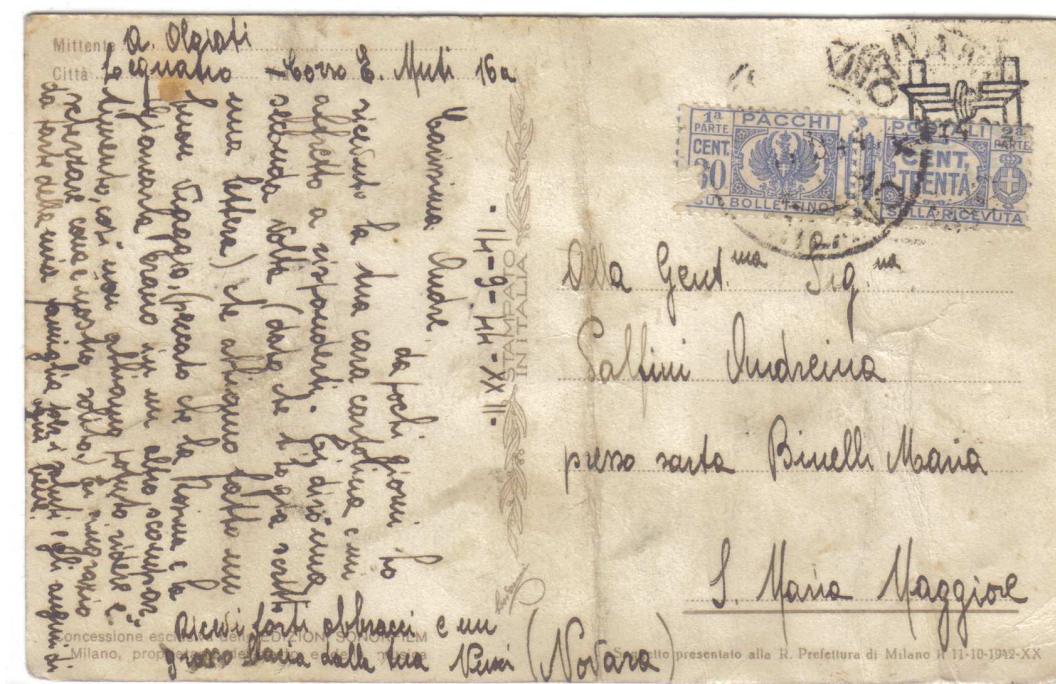 Mittente A. Olgiati
Città Legnano - Corso E. Muti 16a
-11-9-44-XX11-
Carissima Andre
da pochi giorni ho
ricevuto la tua cara cartolina e mi
affretto a risponderti. Ti dirò
seconda volta (dato che ti ho già scritto
una lettera) che abbiamo fatto un
buon viaggio, (peccato che la Norma e la
Gianna erano in un altro scompar-
timento, così non abbiamo potuto ridere e
scherzare come è nostro solito,) ti ringrazio
da parte della mia famiglia per i saluti e gli auguri di
ogni bene
Ricevi forti abbracci e un
grosso bacio dalla tua
STAMPATO
IN ITALIA
1ª PARTE
PACCHI
CENT. 30
SUL BOLLETTINO
POSTALI
2ª PARTE
CENT. TRENTA
SULLA RICEVUTA
Alla Gent.ma Sig.na
Andreina
presso sarta Binelli Maria
S. Maria Maggiore
(Novara)
Concessione esclusiva delle EDIZIONI SONORFILM
Milano, musica
Soggetto presentato alla R. Prefettura di Milano il 11-10-1942-XX